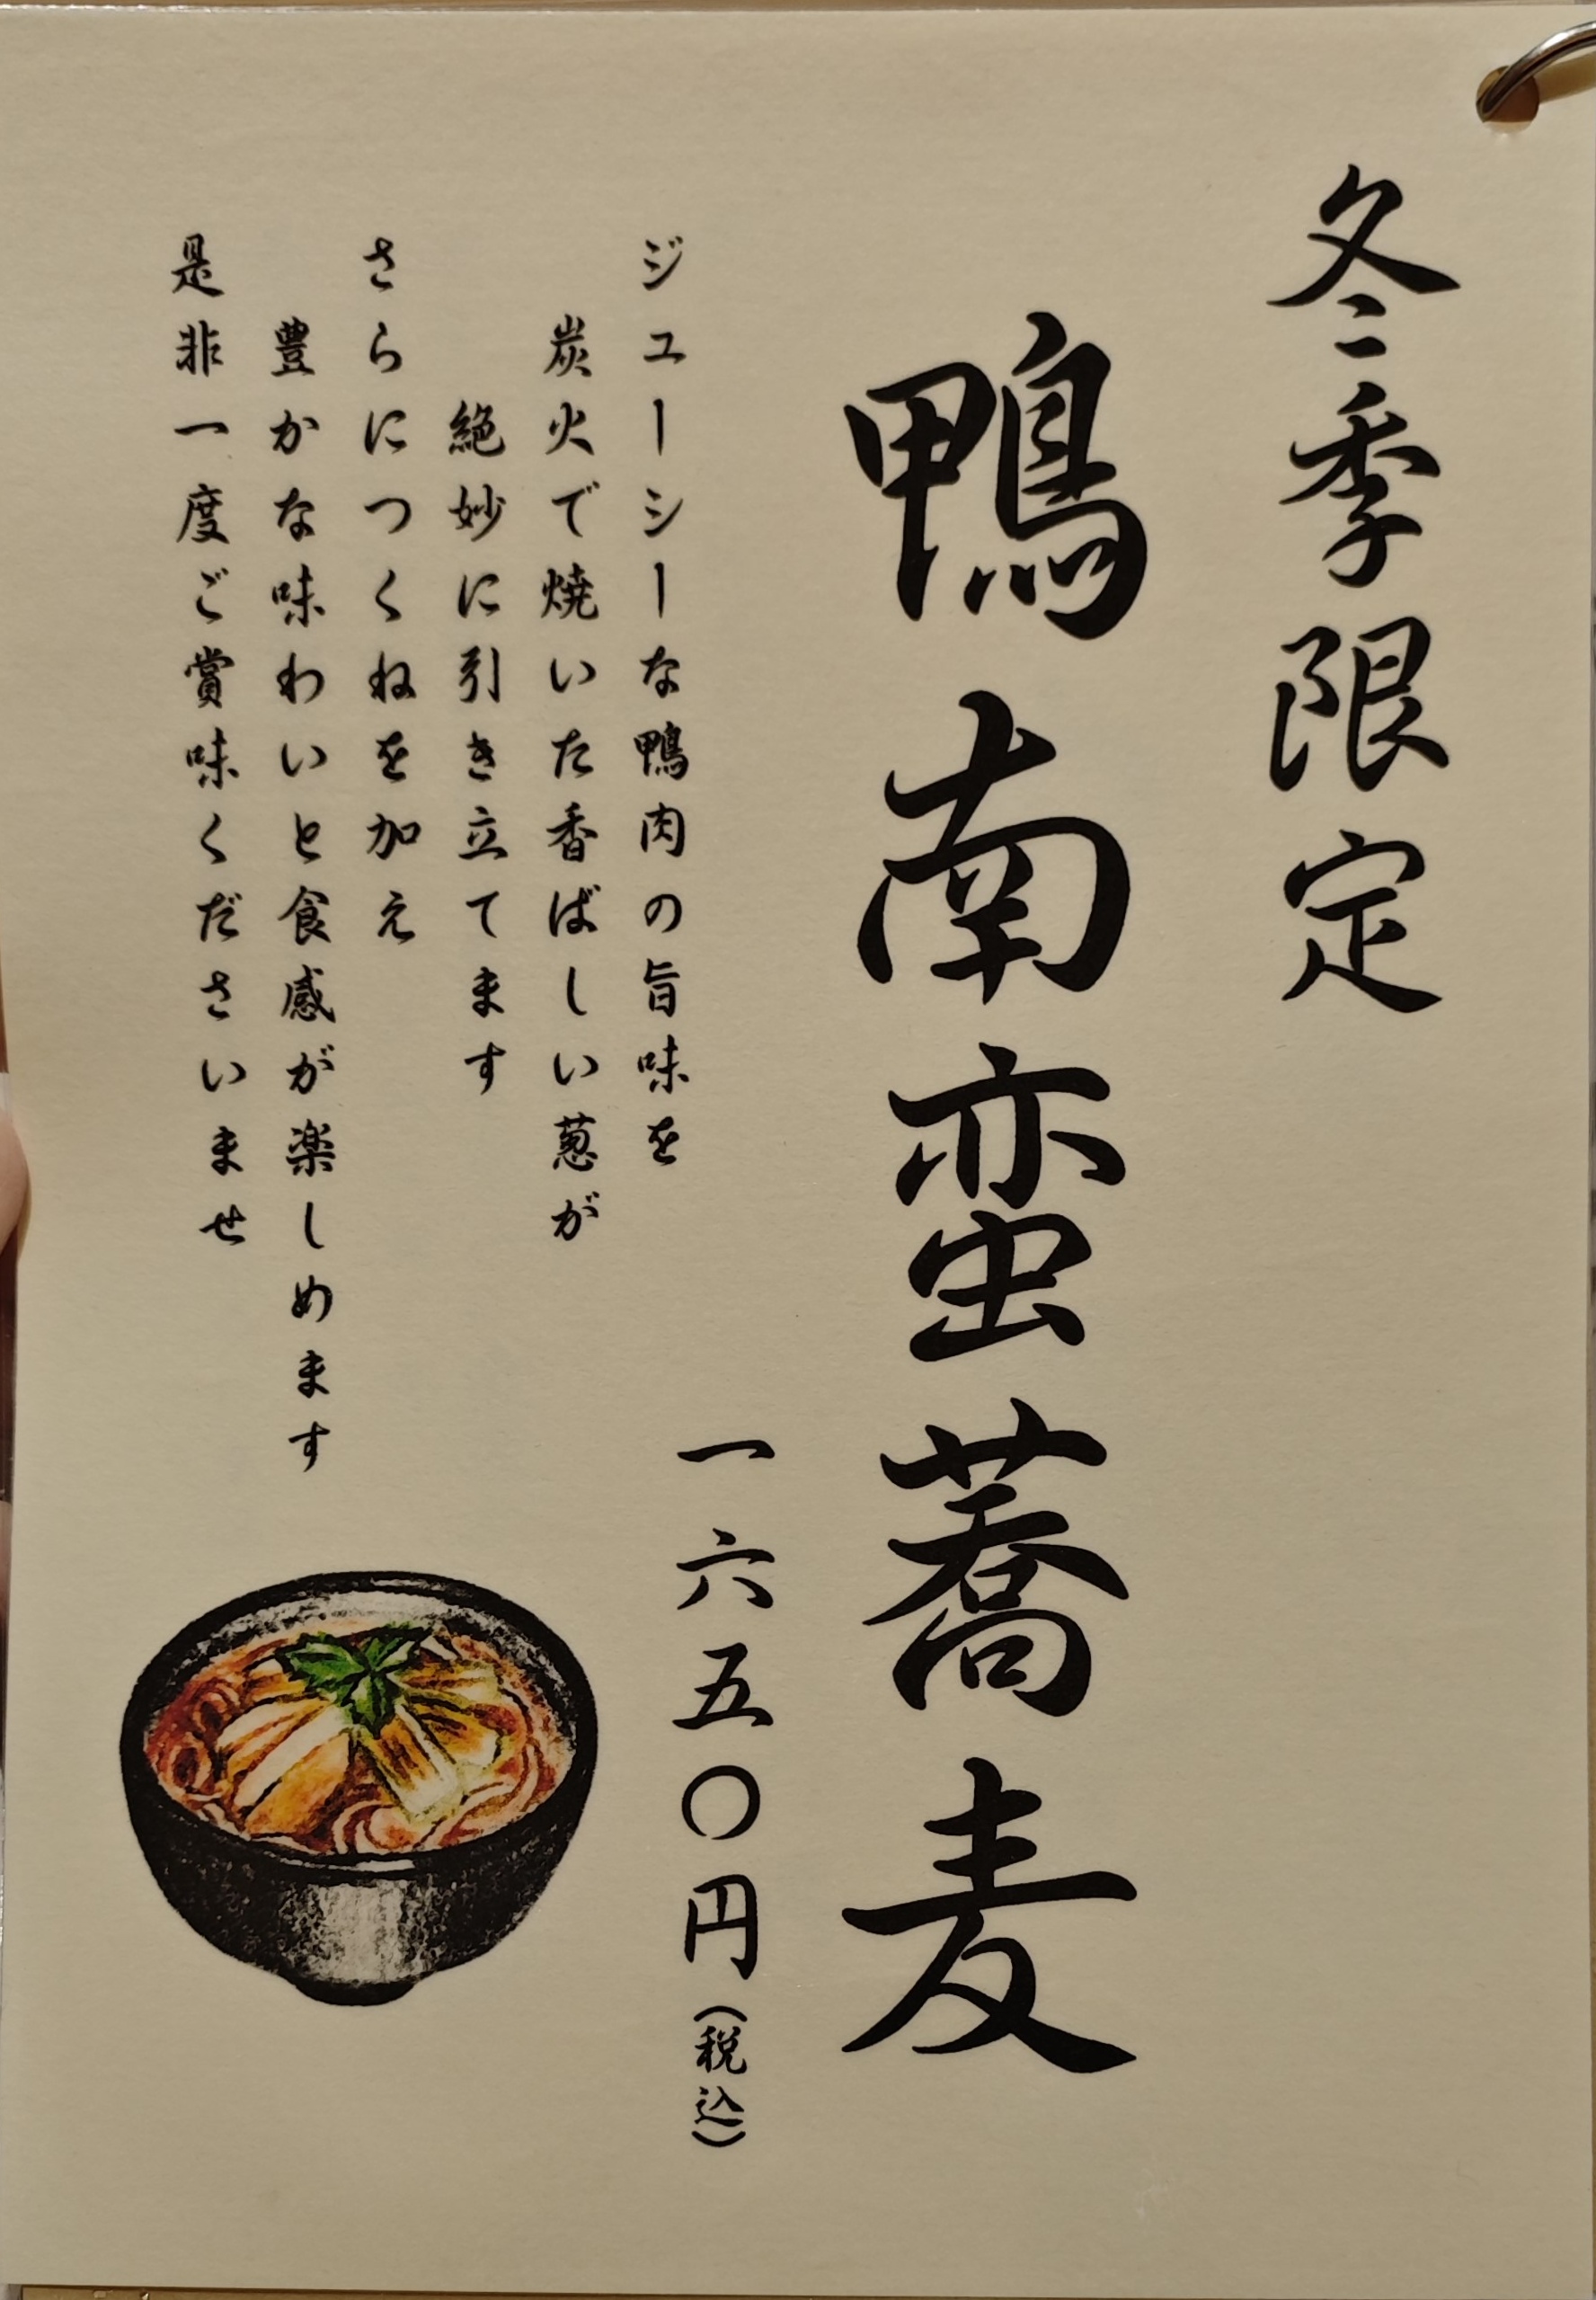 冬季限定
鴨南蛮蕎麦
一六五〇円（税込）
ジューシーな鴨肉の旨味を
炭火で焼いた香ばしい葱が
絶妙に引き立てます
さらにつくねを加え
豊かな味わいと食感が楽しめます
是非一度ご賞味くださいませ